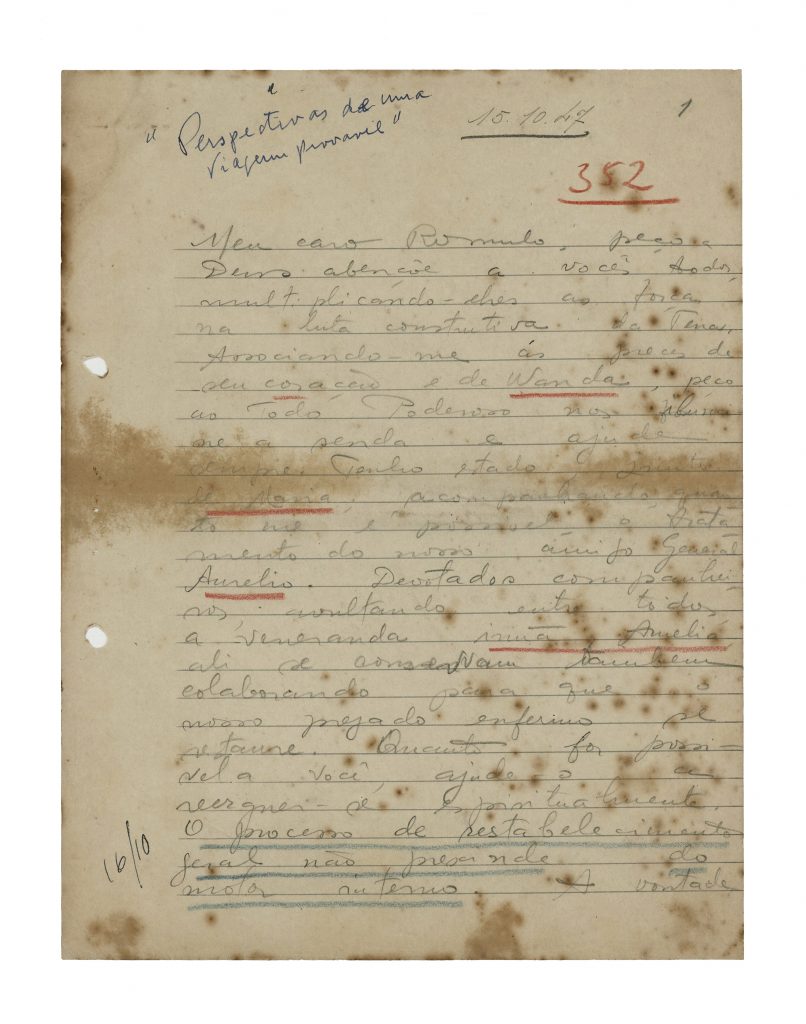 "Perspectivas de uma
viagem provavel"
15.10.47
1
352
Meu caro Romulo, peço a
Deus abençõe a vocês todos,
multiplicando-lhes as forças
na luta construtiva da Terra.
Associando-me ás preces de
seu coração e de Wanda, peço
ao Todo Poderoso nos ilumi
ne a senda e ajude
sempre. Tenho estado junto
de Maria, acompanhando, quan
to me é possivel o trata
mento do nosso amigo General
Aurelio. Devotados companhei
ros, avultando entre todos,
a veneranda irmã Amelia,
ali se conservam tambem
colaborando para que o
nosso prezado enfermo se
restaure. Quanto for possi-
vel a você, ajude-o a
reerguer-se espiritualmente.
O processo de restabelecimento
geral não prescinde do
motor interno. A vontade
16/10